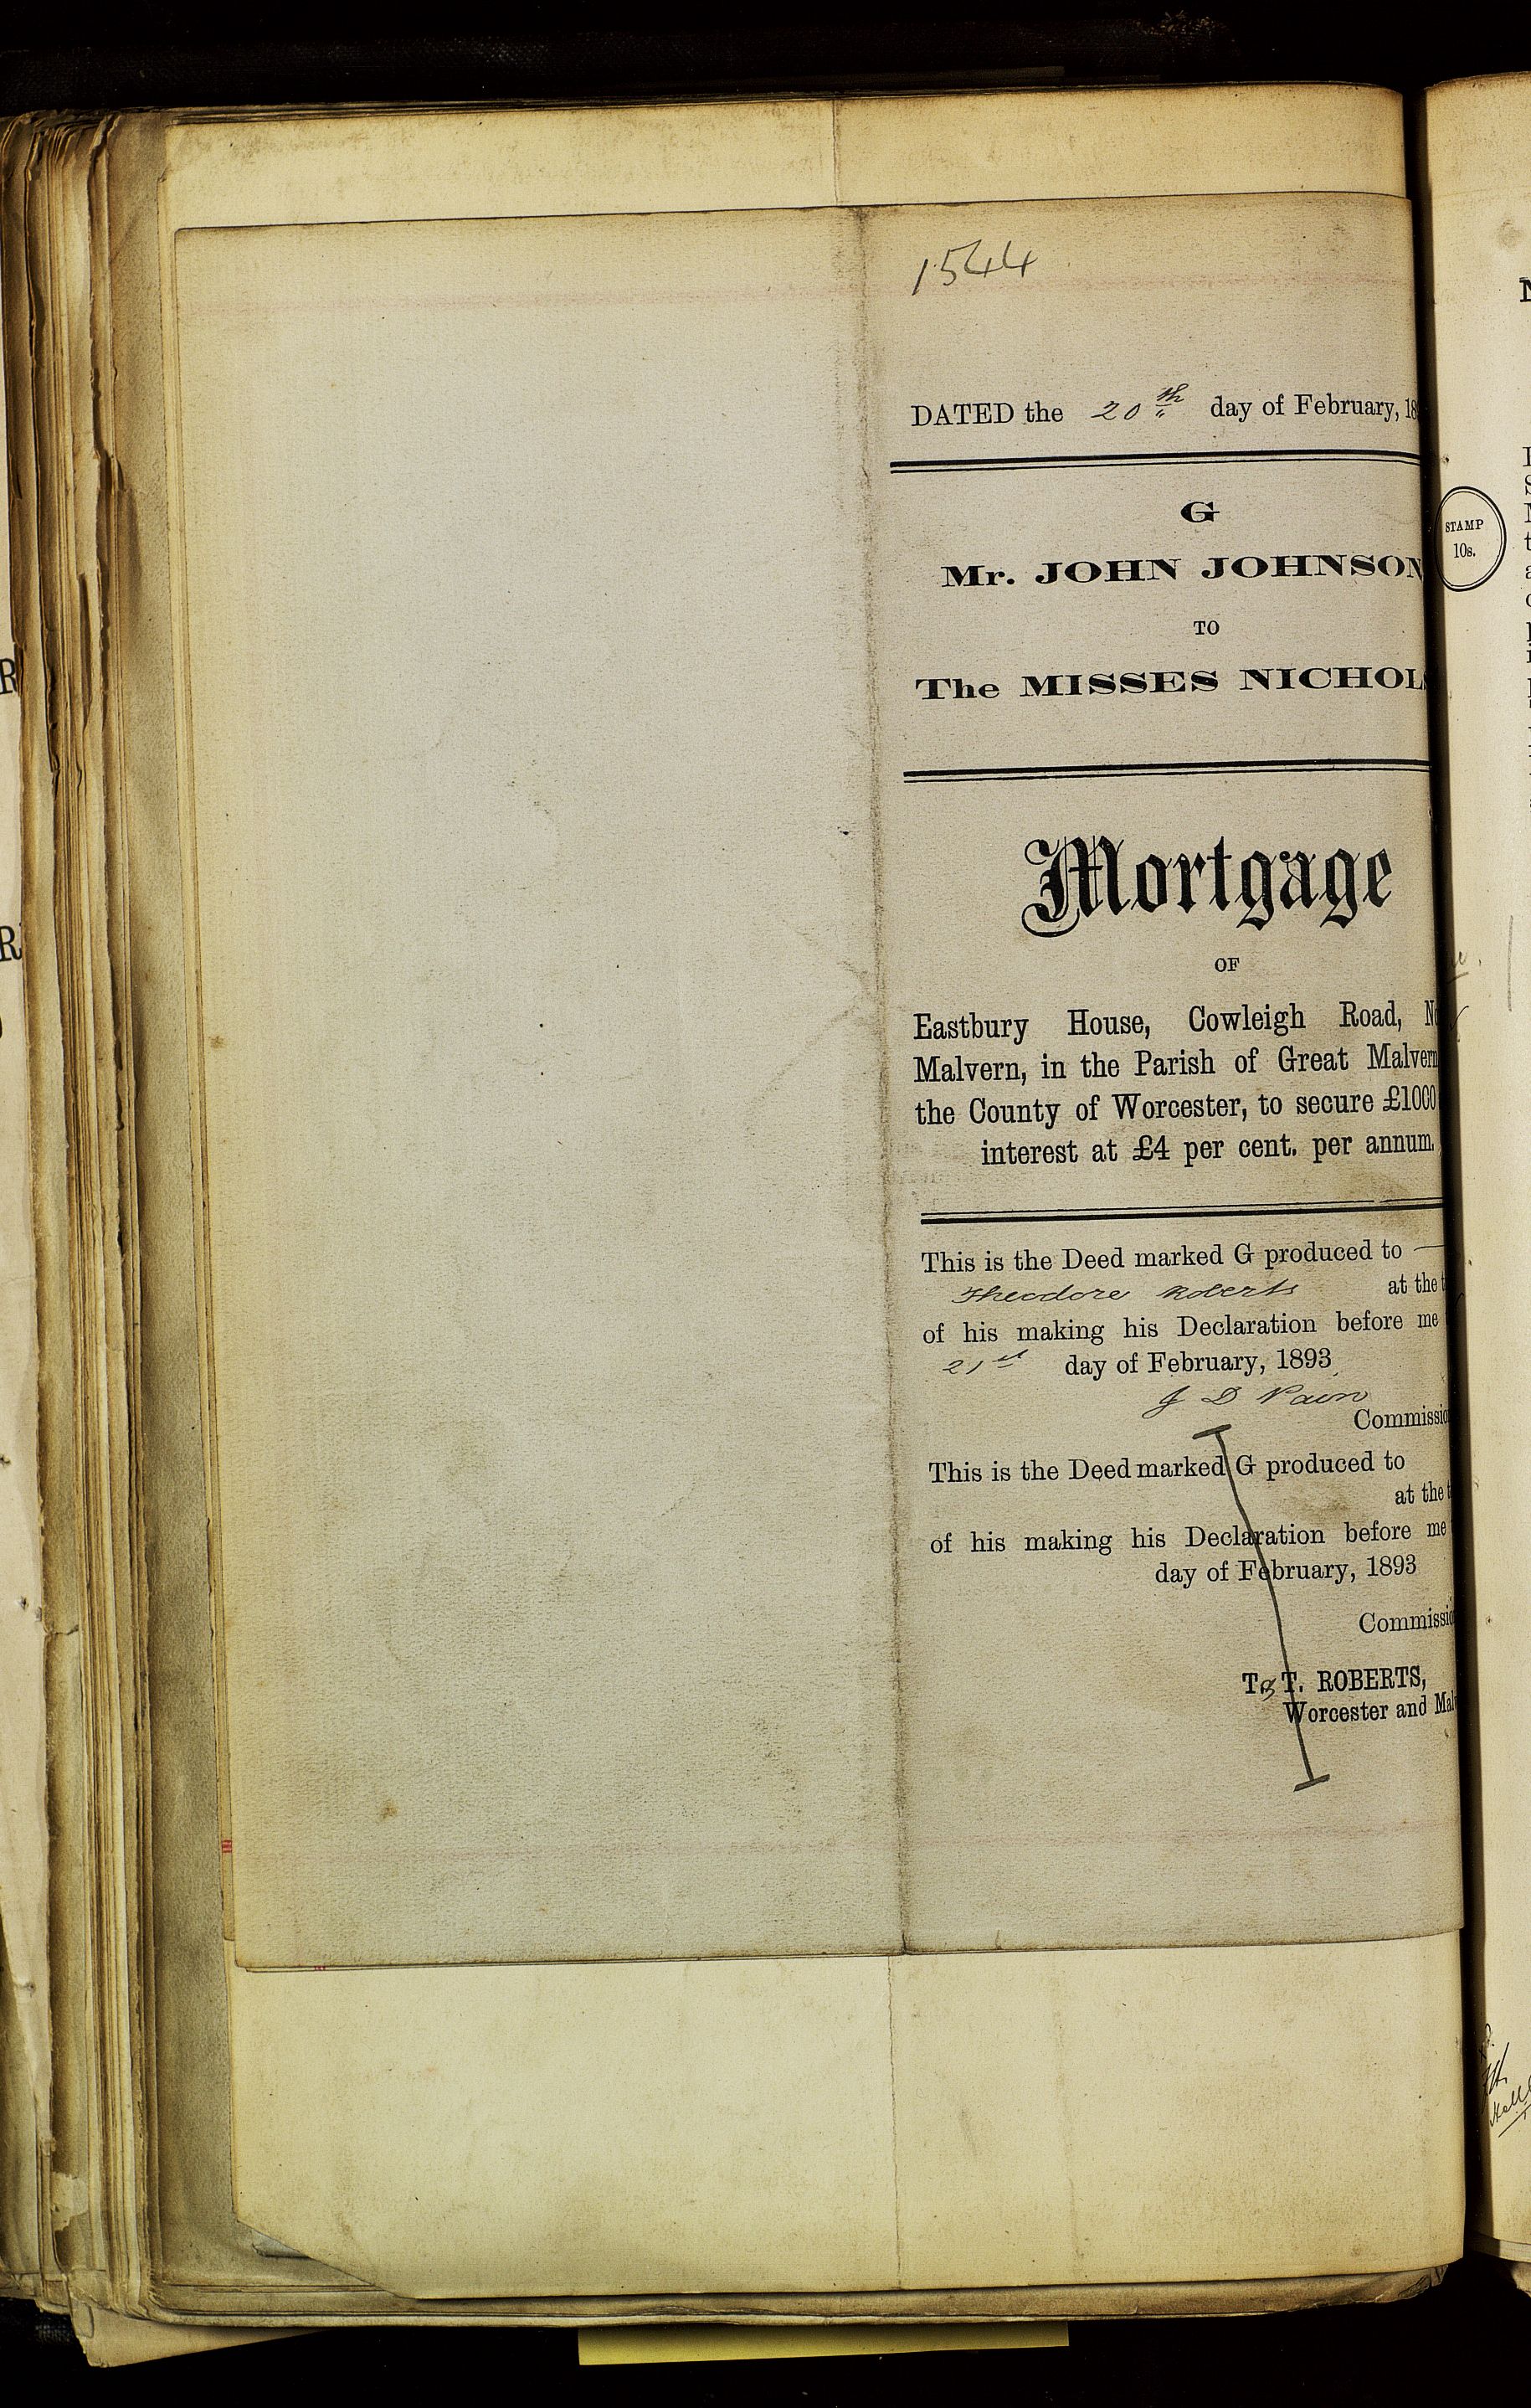 1544
DATED the 20th day of February, 18
G
Mr. JOHN JOHNSON
TO
The MISSES NICHOL
Mortgage
OF
Eastbury House, Cowleigh Road, N
Malvern, in the Parish of Great Malvern
the County of Worcester, to secure £1000
interest at £4 per cent. per annum.
This is the Deed marked G produced to —
Theodore Roberts at the t
of his making his Declaration before me
21st day of February, 1893
J D Pain
Commissio
This is the Deed marked G produced to
at the t
of his making his Declaration before me
day of February, 1893
Commissio
T. & T. ROBERTS,
Worcester and Mal
STAMP
10s.